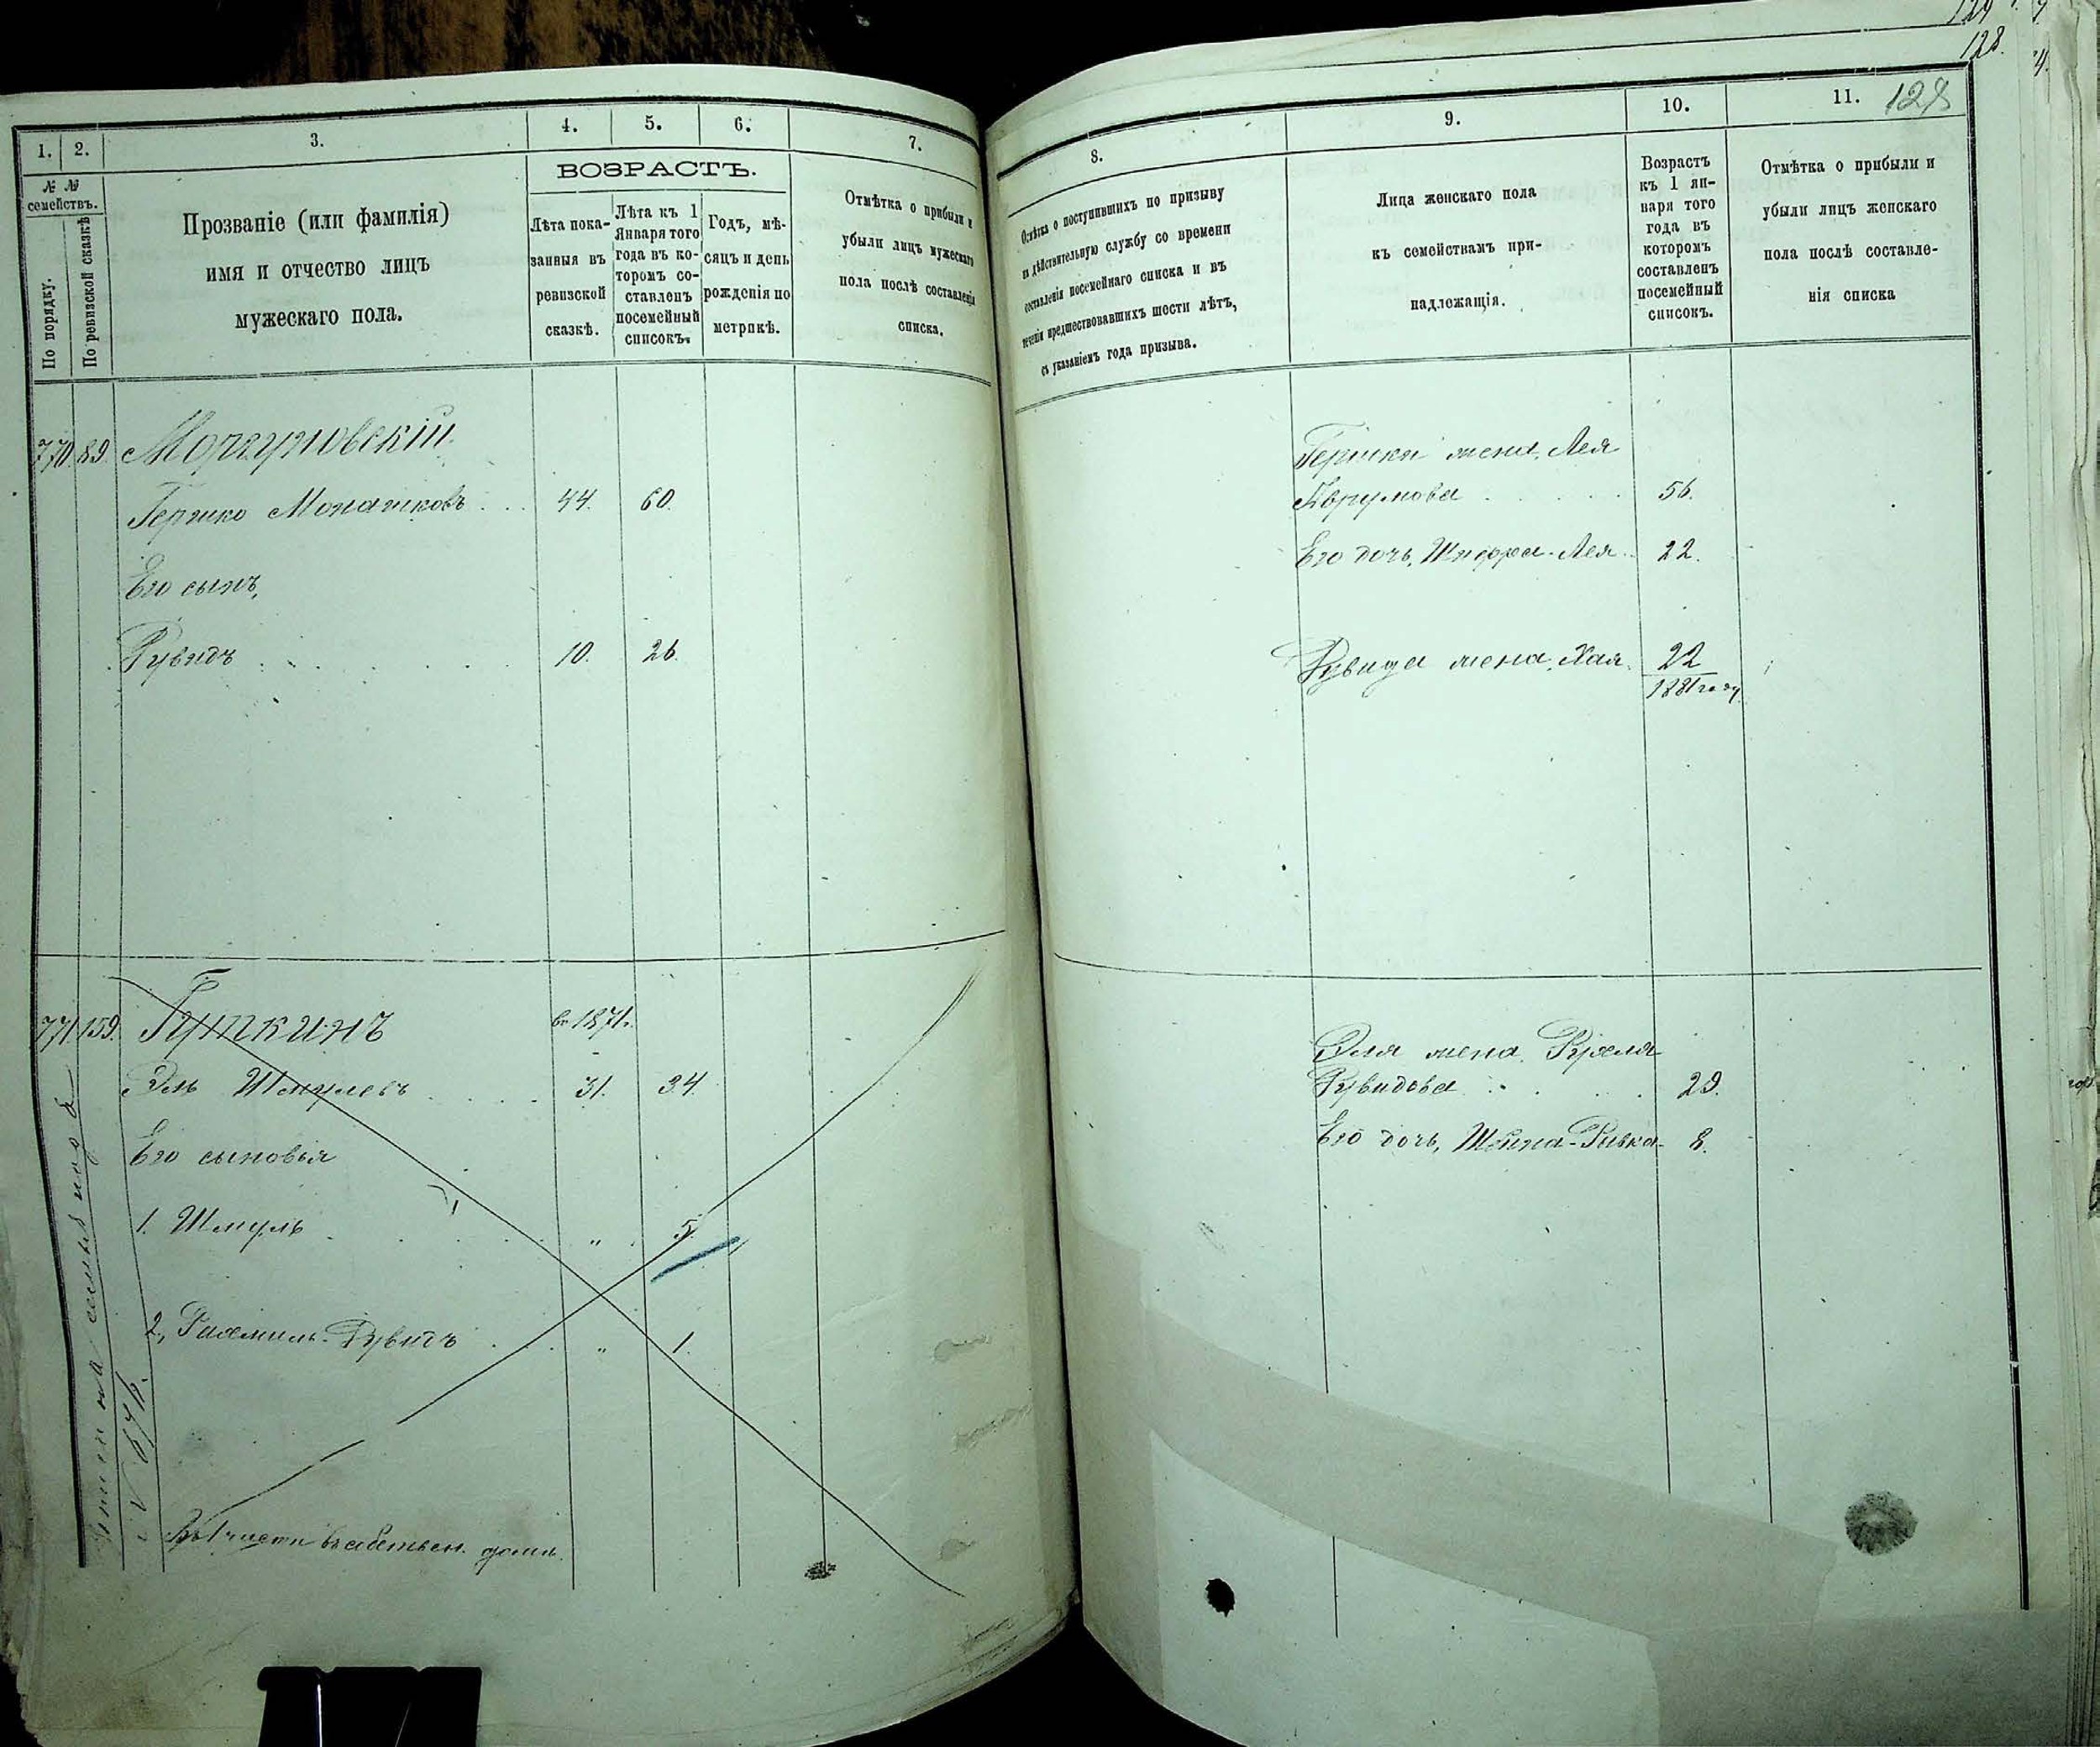 1. 2. 3. 4. 5. 6. 7.
№ № семействъ.
По порядку.
По ревизской сказкѣ
Прозваніе (или фамилія)
имя и отчество лицъ
мужескаго пола.
ВОЗРАСТЪ.
Лѣта пока-
занныя въ
ревизской
сказкѣ.
Лѣта къ 1
Января того
года въ ко-
торомъ со-
ставленъ
посемейный
списокъ.
Годъ, мѣ-
сяцъ и день
рожденія по
метрикѣ.
Отмѣтка о прибыли и
убыли лицъ мужескаго
пола послѣ составленія
списка.
770. 89. Моргуновскій.
Гершко Монашковъ . . . 44. 60.
Его сынъ,
Рувидъ . . . 10. 26.
771. 159. въ 1871г.
Эль Шмулевъ . . . 31. 34.
Его сыновья
1. Шмуль . . . " 5.
2, Рахмиль-Рувидъ . . " 1.
129
128.
8. 9. 10. 11. 128
Отмѣтка о поступившихъ по призыву
въ дѣйствительную службу со времени
составленія посемейнаго списка и въ
теченіи предшествовавшихъ шести лѣтъ,
съ указаніемъ года призыва.
Лица женскаго пола
къ семействамъ при-
надлежащія.
Возрастъ
къ 1 ян-
варя того
года въ
которомъ
составленъ
посемейный
списокъ.
Отмѣтка о прибыли и
убыли лицъ женскаго
пола послѣ составле-
нія списка
Гершки жена, Лея
Аврумова . . . . 56.
Его дочь, Шифра-Лея . 22.
Рувида жена, Хая. 22
1881 году
Эля жена, Рухля
Рувидова . . . 29.
Его дочь, Шейна-Ривка 8.